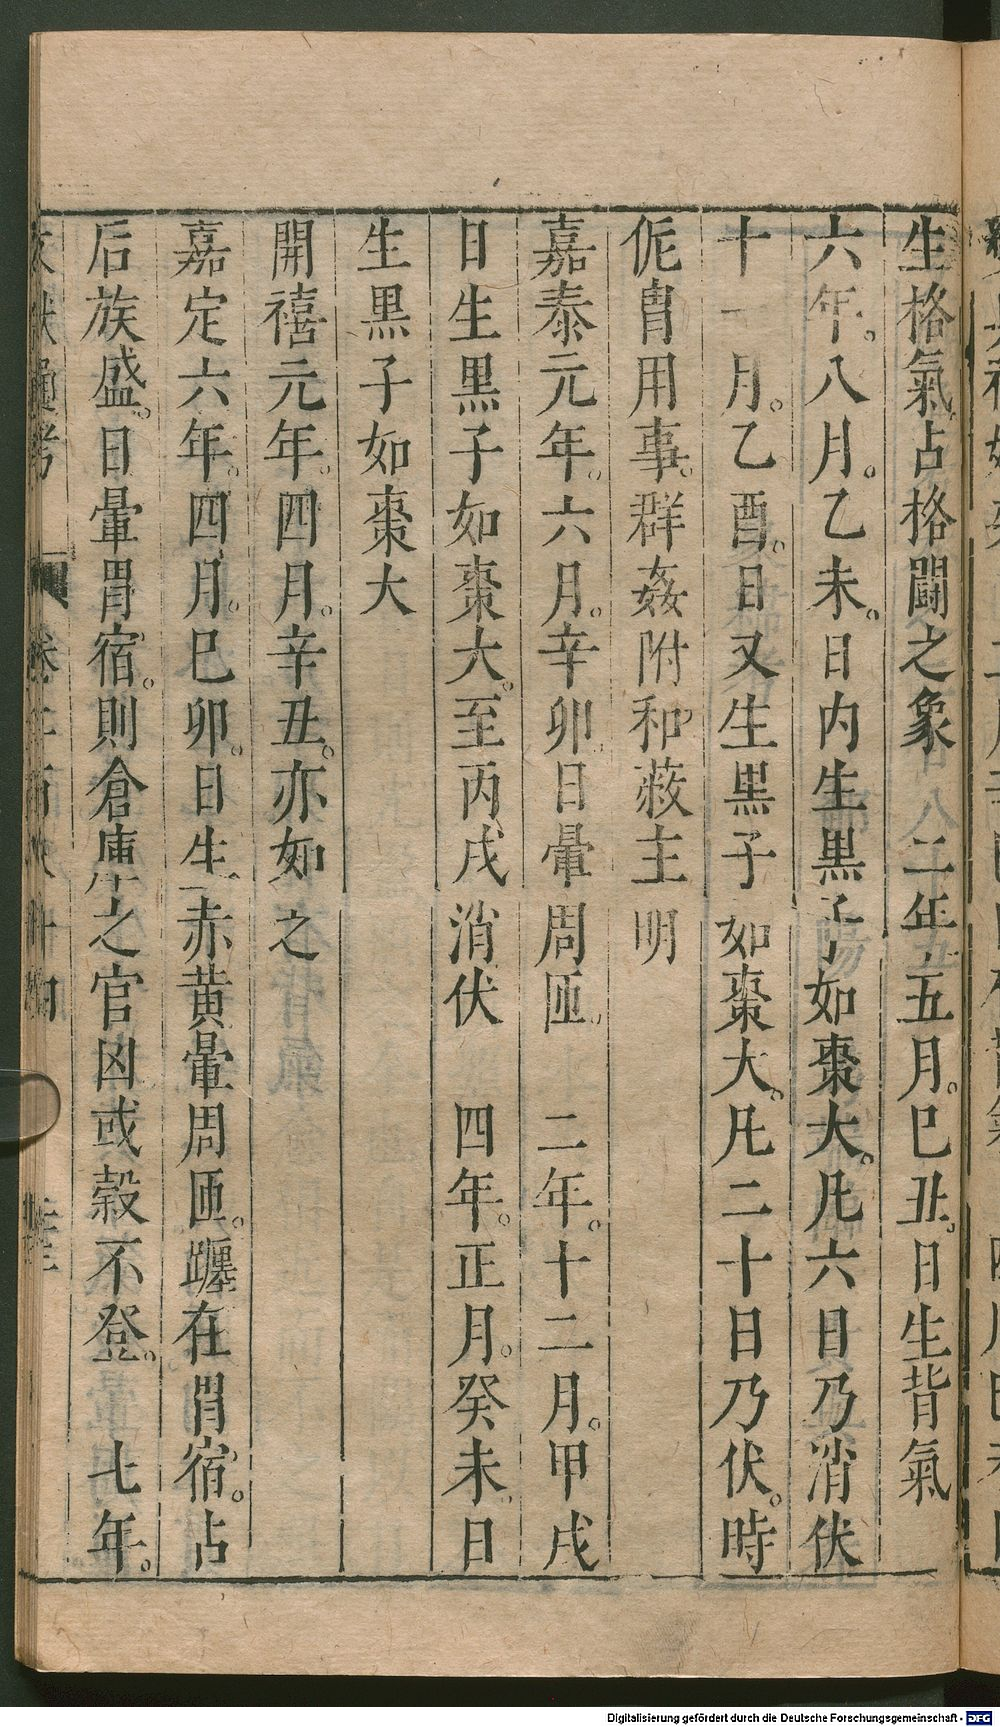 生格氣。占格鬪之象　二年五月。巳丑。日生背氣
六年。八月。乙未。日内生黑子如棗大。凡六日乃消伏
十一月。乙酉。日又生黑子如棗大。凡二十日乃伏。時
侂胄用事。群姦附和蔽主明
嘉泰元年。六月。辛卯。日暈周匝。　二年。十二月。甲戌
日生黑子如棗大。至丙戌消伏　四年。正月。癸未。日
生黑子如棗大
開禧元年。四月。辛丑。亦如之
嘉定六年。四月。巳卯。日生赤黄暈周匝。躔在胃宿。占
后族盛。日暈胃宿。則倉庫之官凶。或榖不登。　七年。
Digitalisierung gefördert durch die Deutsche Forschungsgemeinschaft - DFG